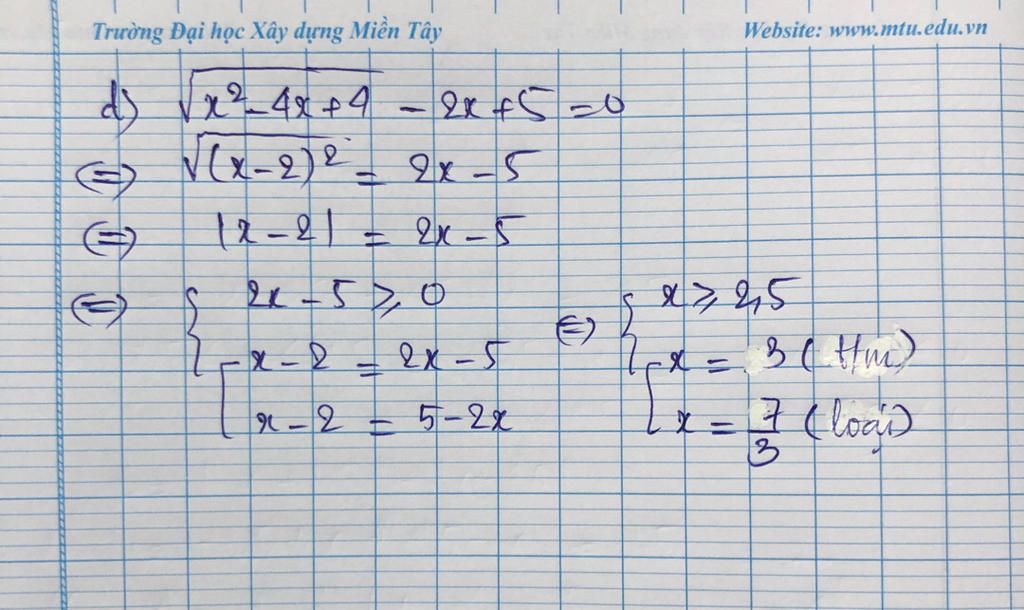 Trường Đại học Xây dựng Miền Tây Website: www.mtu.edu.vn
d) √(x² - 4x + 4) - 2x + 5 = 0
⇔ √((x - 2)²) = 2x - 5
⇔ |x - 2| = 2x - 5
⇔ { 2x - 5 ≥ 0 ⇔ { x ≥ 2,5
[ x - 2 = 2x - 5 [ x = 3 (t/m)
x - 2 = 5 - 2x x = 7/3 (loại)